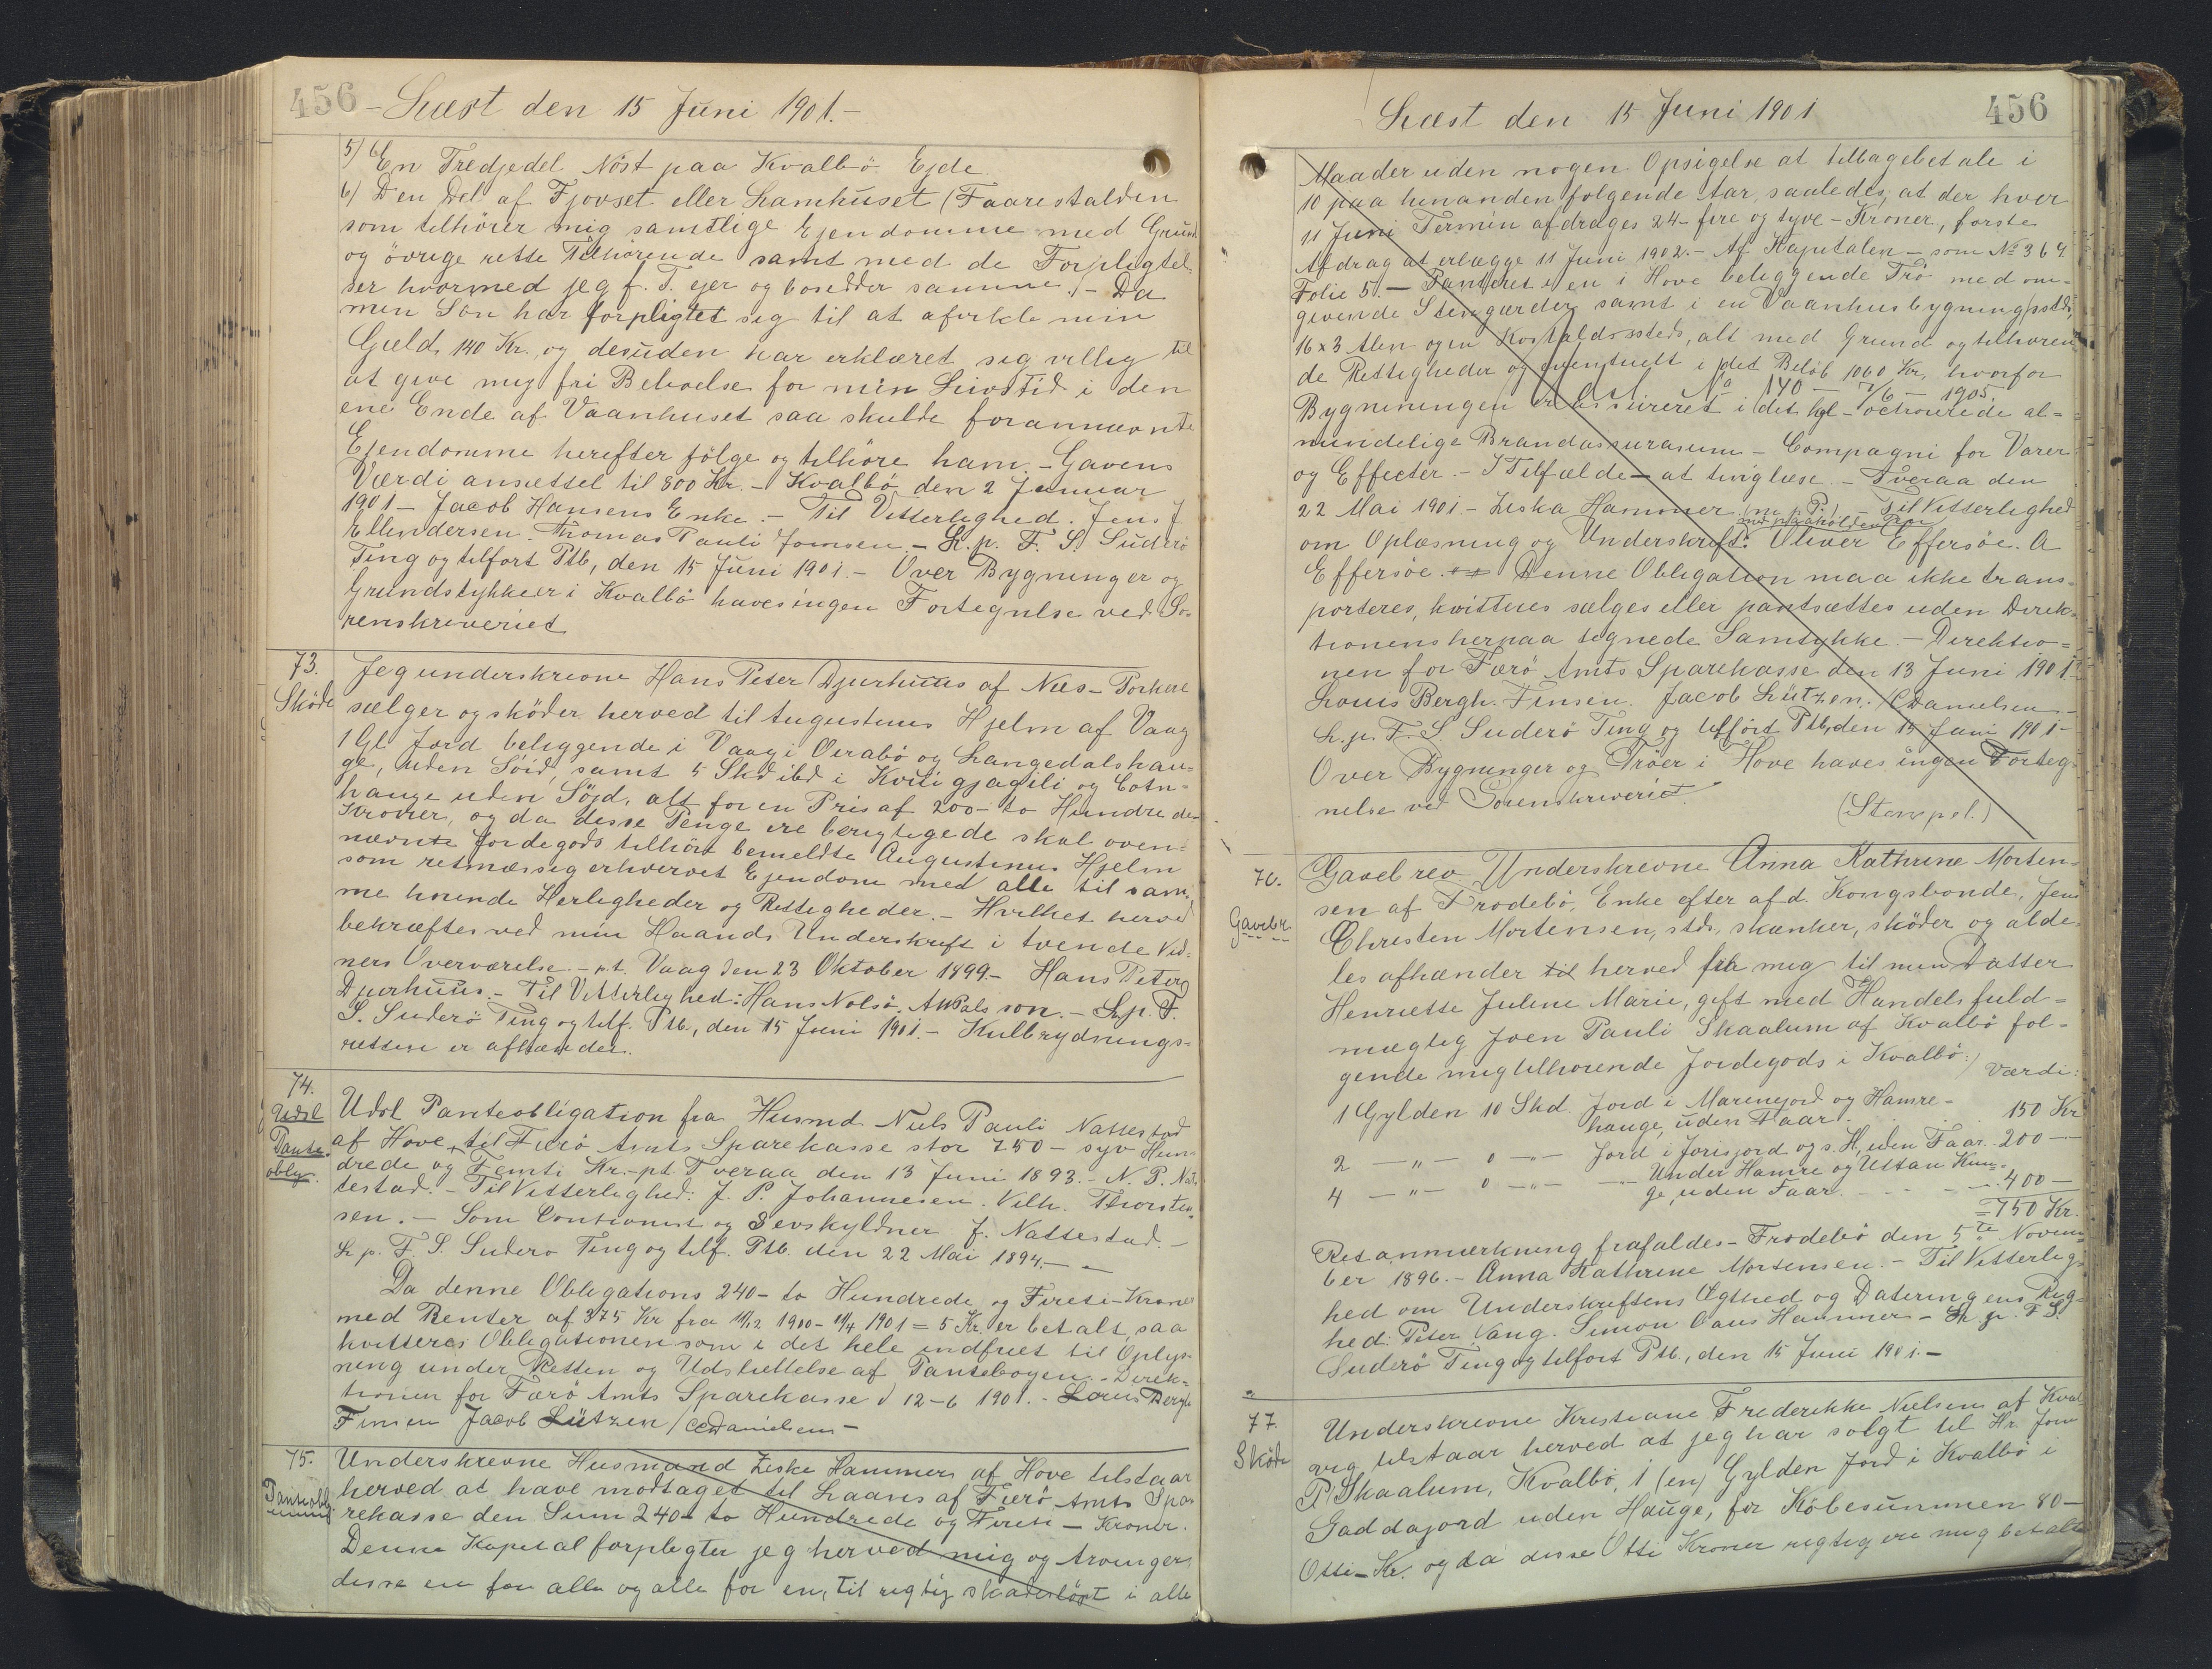 456 - Læst den 15 Juni 1901.-
5) En Tredjedel Nöst paa Kvalbö Ejde
6) Den Del af Fjovset eller Lamhuset (Faarestalden
som tilhörer mig samtlige Ejendomme med Grund
og övrige rette Tilhörende samt med de Forpligtel-
ser hvormed jeg f. T. ejer og besidder samme.- Da
min Sön har forpligtet sig til at afvikle min
Gæld 140 Kr. og desuden har erklæret sig villig til
at give mig fri Beboelse for min Livstid i den
ene Ende af Vaanhuset saa skulde forannævnte
Ejendomme herefter fölge og tilhöre ham. - Gavens
Værdi ansættes til 800 Kr. - Kvalbö den 2 Januar
1901 - Jacob Hansens Enke. - Til Vitterlighed. Jens J
Ellendersen. Thomas Pauli Joensen. - L. p. F. S. Suderö
Ting og tilfört Ptb, den 15 Juni 1901. - Over Bygninger og
Grundstykker i Kvalbö haves ingen Fortegnelse ved So-
renskriveriet
73.
Sköde
Jeg underskrevne Hans Peter Djurhuus af Næs - Porkere
sælger og sköder herved til Augustinus Hjelm af Vaag
1 Gl Jord beliggende i Vaag i Ørrabö og Langedalshau-
ge, uden Söid, samt 5 Skd ibd i Kvitigjagili og Botn-
hauge uden Söjd, alt for en Pris af 200 - to Hundrede -
Kroner, og da disse Penge ere berigtigede skal oven-
nævnte Jordegods tilhöre bemeldte Augustinus Hjelm
som retmæssig erhvervet Ejendom med alle til sam-
me hörende Herligheder og Rettigheder. - Hvilket herved
bekræftes ved min Haands Underskrift i tvende Vid-
ners Overværelse. - p.t. Vaag den 23 Oktober 1899. - Hans Peter
Djurhuus. - Til Vitterlighed: Hans Nolsö. A W Pals son. - L. p. F.
S. Suderö Ting og tilf. Ptb., den 15 Juni 1901. - Kulbrydnings-
retten er afhændet.
74.
Udsl
Pante-
oblig.
Udsl Panteobligation fra Husmd Niels Pauli Nattestad
af Hove til Færö Amts Sparekasse stor 750 - syv Hun-
drede og Femti Kr. - pt Tveraa den 13 Juni 1893. - N. P. Nat-
testad. - Til Vitterlighed: J. P. Johannesen. Vilh. Thorstein-
sen. - Som Cautionist og Selvskyldner J. Nattestad. -
L. p. F. S. Suderö Ting og tilf. Ptb. den 22 Mai 1894. -
Da denne Obligations 240 - to Hundrede og Fireti - Kroner
med Renter af 375 Kr fra 11/12 1900 - 11/4 1901 = 5 Kr. er betalt, saa
kvitteres Obligationen som i det hele indfriet til Oplys-
ning under Retten og Udslettelse af Pantebogen. - Direk-
tionen for Færö Amts Sparekasse d 12-6 1901. - Louis Bergh
Finsen Jacob Lützen / CDanielsen -
75.
Panteobl.
Underskrevne Husmand Ziska Hammer af Hove tilstaar
herved at have modtaget til Laans af Færö Amts Spa-
rekasse den Sum 240 - to Hundrede og Fireti - Kroner.
Denne Kapital forpligter jeg herved mig og Arvinger
disse en for alle og alle for en, til rigtig skadeslöst i alle
Læst den 15 Juni 1901 456
Maader uden nogen Opsigelse at tilbagebetale i
10 paa hinanden fölgende Aar, saaledes, at der hver
11 Juni Termin afdrages 24 - fire og tyve - Kroner, förste
Afdrag at erlægge 11 Juni 1902. - Af Kapitalen - som No 364
Folie 51. - Panteret i en i Hove beliggende Trö med om-
givende Stengærder samt i en Vaanhusbygning sstds,
16 x 3 Alen og en Kostald sssteds, alt med Grund og tilhören-
de Rettigheder og eventuelt i det Belöb 1060 Kr, hvorfor
Udsl. No 140 - 7/6 - 1905.
Bygningen er assureret i det kgl - octroierede al-
mindelige Brandassurance - Compagni for Varer
og Effecter. - I Tilfælde - at tinglæse. - Tveraa den
22 Mai 1901. - Ziska Hammer (m. p. P.) - Til Vitterlighed
med paaholden Pen
om Oplæsning og Underskrift: Oliver Effersöe. A
Effersöe. Denne Obligation maa ikke trans-
porteres, kvitteres sælges eller pantsættes uden Direk-
tionens herpaa tegnede Samtykke. - Direktio-
nen for Færö Amts Sparekasse den 13 Juni 1901.
Louis Bergh. Finsen. Jacob Lützen. / CDanielsen. -
L. p. F. S. Suderö Ting og tilfört Ptb, den 15 Juni 1901 -
Over Bygninger og Tröer i Hove haves ingen Forteg-
nelse ved Sorenskriveriet.
(Stempel.)
76.
Gavebr.
Gavebrev Underskrevne Anna Kathrine Morten-
sen af Frodebö, Enke efter afd. Kongsbonde, Jens
Christen Mortensen, stds, skænker, sköder og alde-
les afhænder til herved fra mig til min Datter
Henriette Juline Marie, gift med Handelsfuld-
mægtig Joen Pauli Skaalum af Kvalbö föl-
gende mig tilhörende Jordegods i Kvalbö:)
Værdi:
1 Gylden 10 Skd. Jord i Marinejord og Hamre-
hauge, uden Faar. 150 Kr
2 - " - 0 - " - Jord i Jorisjord og s. H, uden Faar. 200 -
4 - " - 0 - " - Under Hamre og Uttan Kun-
ge, uden Faar. - - - 400 -
= 750 Kr.
Retsanmærkning frafaldes - Frodebö den 5te Novem-
ber 1896. - Anna Kathrine Mortensen. - Til Vitterlig-
hed om Underskriftens Ægthed og Dateringens Rig-
hed: Peter Vang. Simon Claus Hammer - L. p. F S.
Suderö Ting og tilfört Ptb., den 15 Juni 1901. -
77.
Sköde
Underskrevne Kristiane Frederikke Nielsen af Kval-
vig tilstaar herved at jeg har solgt til Hr. Joen
P. Skaalum, Kvalbö, 1 (en) Gylden Jord i Kvalbö i
Gaddajord uden Hauge, for Köbesummen 80 -
Otti - Kr. og da disse Otti Kroner rigtig ere mig betalte